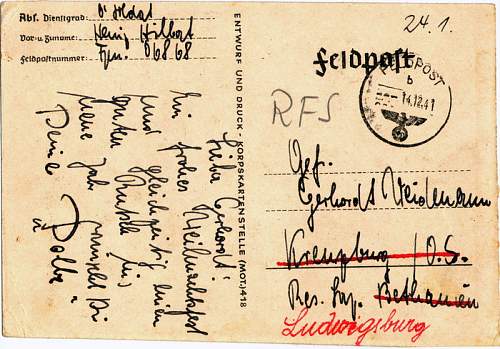 Abs. Dienstgrad: O'Soldat
Vor- u. Zuname: Heinz Hilbert
Feldpostnummer: Fpn. 06868
Liebe Gerhardt!
Ein frohes Weihnachtsfest
und gleichzeitig einen
guten Rutsch ins
neue Jahr wünscht Dir
Deine
ENTWURF UND DRUCK - KORPSKARTENSTELLE (MOT.) 418
24.1.
Feldpost
FELDPOST
b
14.12.41
RFS
Gefr.
Gerhardt Weidemann
Kreuzburg /O.S.
Res. Laz. Bethanien
Ludwigsburg